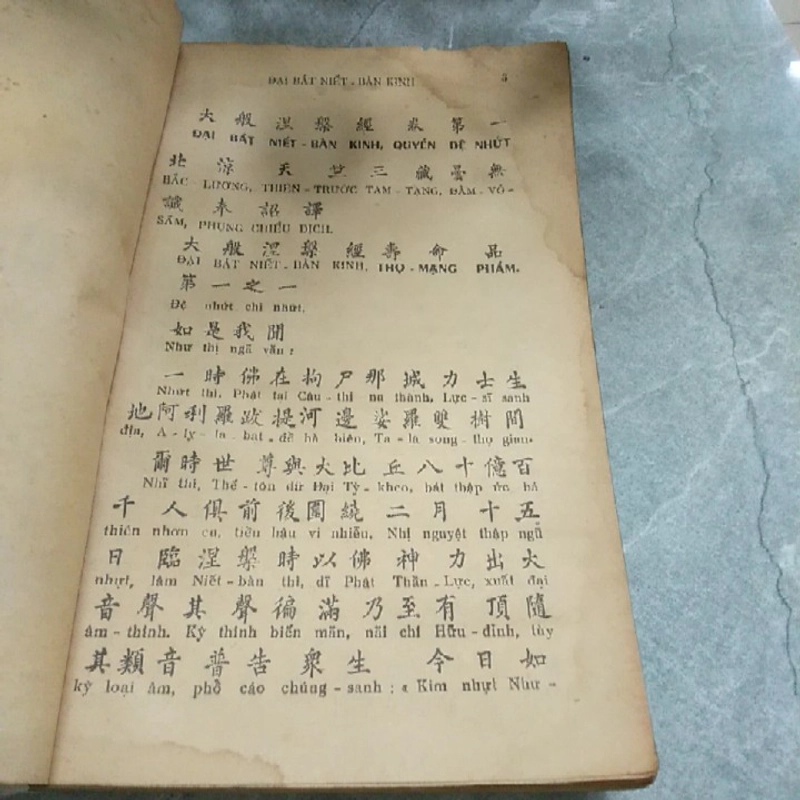 ĐẠI BÁT NIẾT - BÀN KINH 5
大般涅槃經卷第一
ĐẠI BÁT NIẾT - BÀN KINH, QUYỂN ĐỆ NHỨT
北涼天竺三藏曇無
BẮC - LƯƠNG, THIÊN - TRƯỚC TAM - TẠNG, ĐÀM - VÔ -
讖奉詔譯
SẤM, PHỤNG CHIẾU DỊCH.
大般涅槃經壽命品
ĐẠI BÁT NIẾT - BÀN KINH, THỌ - MẠNG PHẨM.
第一之一
Đệ nhứt chi nhứt.
如是我聞
Như thị ngã văn :
一時佛在拘尸那城力士生
Nhứt thì, Phật tại Câu - thi na thành, Lực - sĩ sanh
地阿利羅跋提河邊娑羅雙樹間
địa, A - ly - la - bạt - đề hà biên, Ta - la song - thọ gian.
爾時世尊與大比丘八十億百
Nhĩ thì, Thế - tôn dữ Đại Tỳ - kheo, bát thập ức bá
千人俱前後圍繞二月十五
thiên nhơn cu, tiền hậu vi nhiễu, Nhị nguyệt thập ngũ
日臨涅槃時以佛神力出大
nhựt, lâm Niết - bàn thì, dĩ Phật Thần - Lực, xuất đại
音聲其聲徧滿乃至有頂隨
âm - thinh. Kỳ thinh biến mãn, nãi chí Hữu - đỉnh, tùy
其類音普告眾生今日如
kỳ loại âm, phổ cáo chúng - sanh : « Kim nhựt Như -